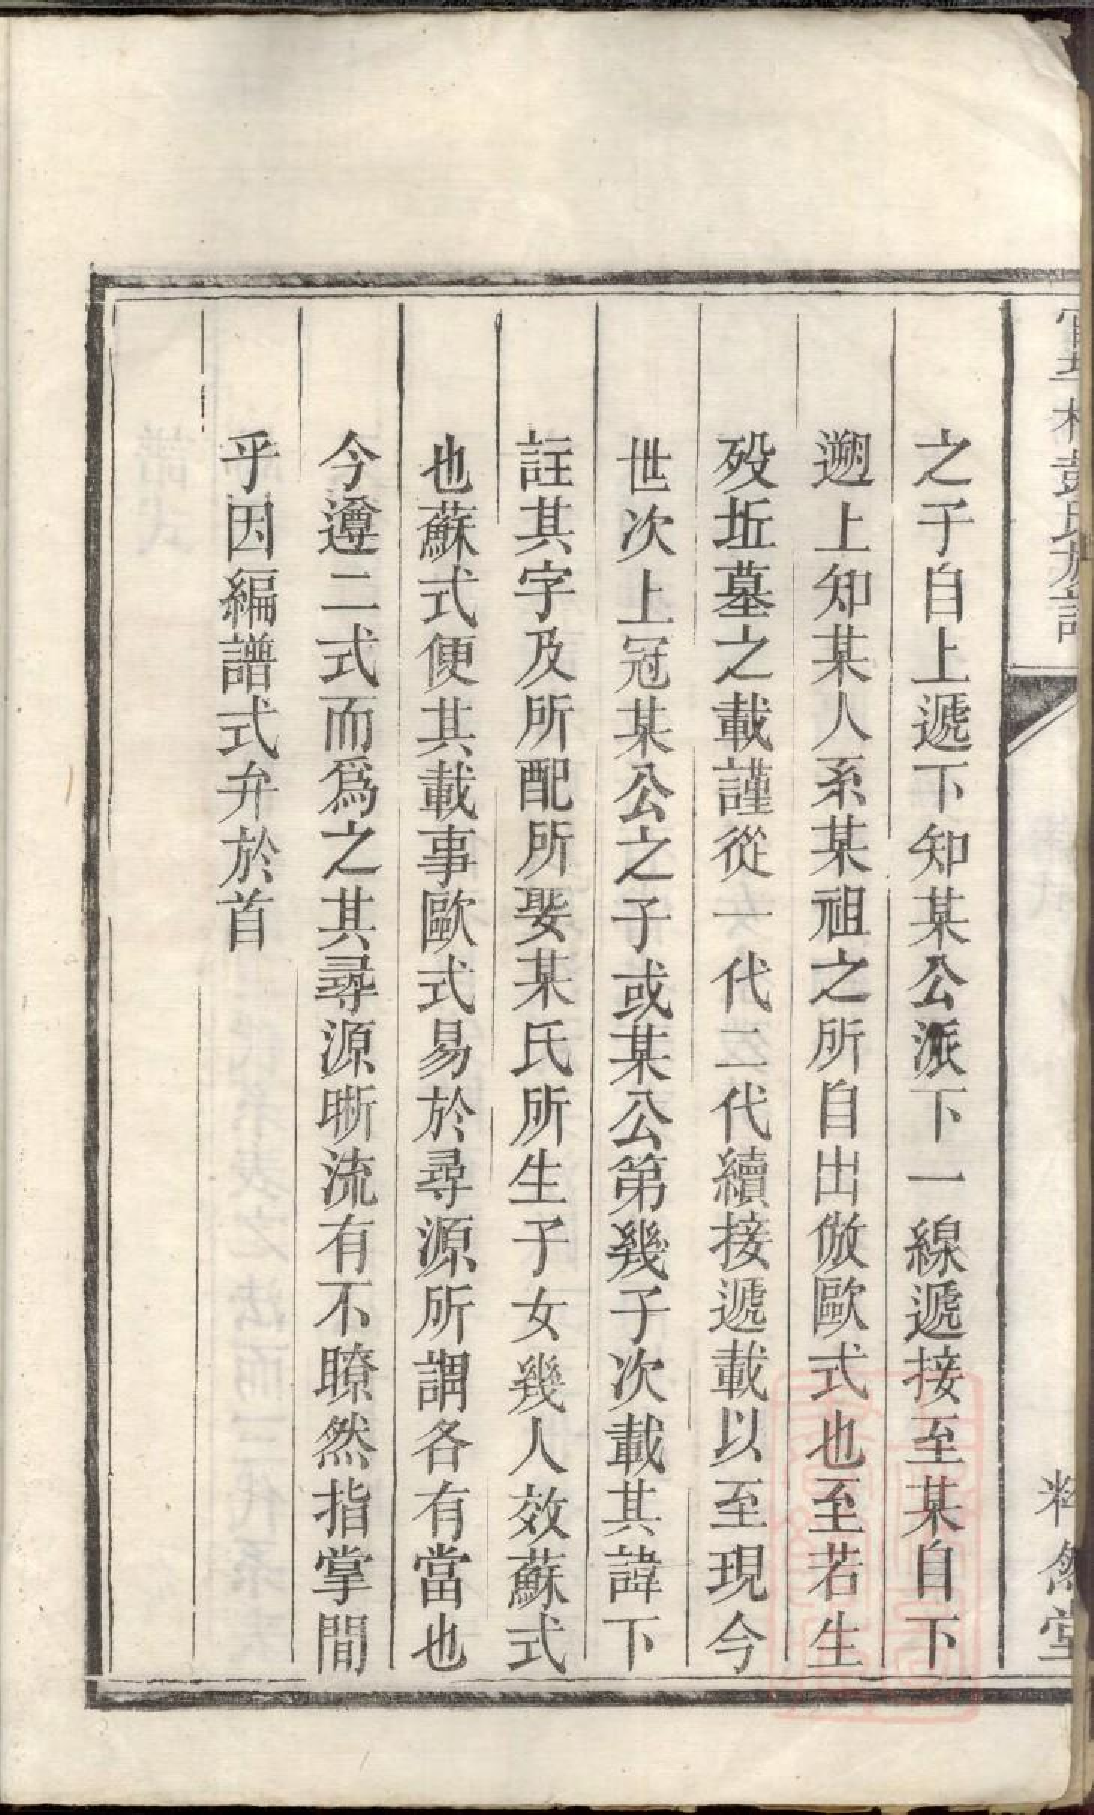 之子自上遞下知某公派下一線遞接至某自下
遡上知某人系某祖之所自出倣歐式也至若生
歿坵墓之載謹從一代二代續接遞載以至現今
世次上冠某公之子或某公第幾子次載其諱下
註其字及所配所娶某氏所生子女幾人效蘇式
也蘇式便其載事歐式易於尋源所謂各有當也
今遵二式而爲之其尋源晰流有不瞭然指掌間
乎因編譜式弁於首
彭氏族譜
堂